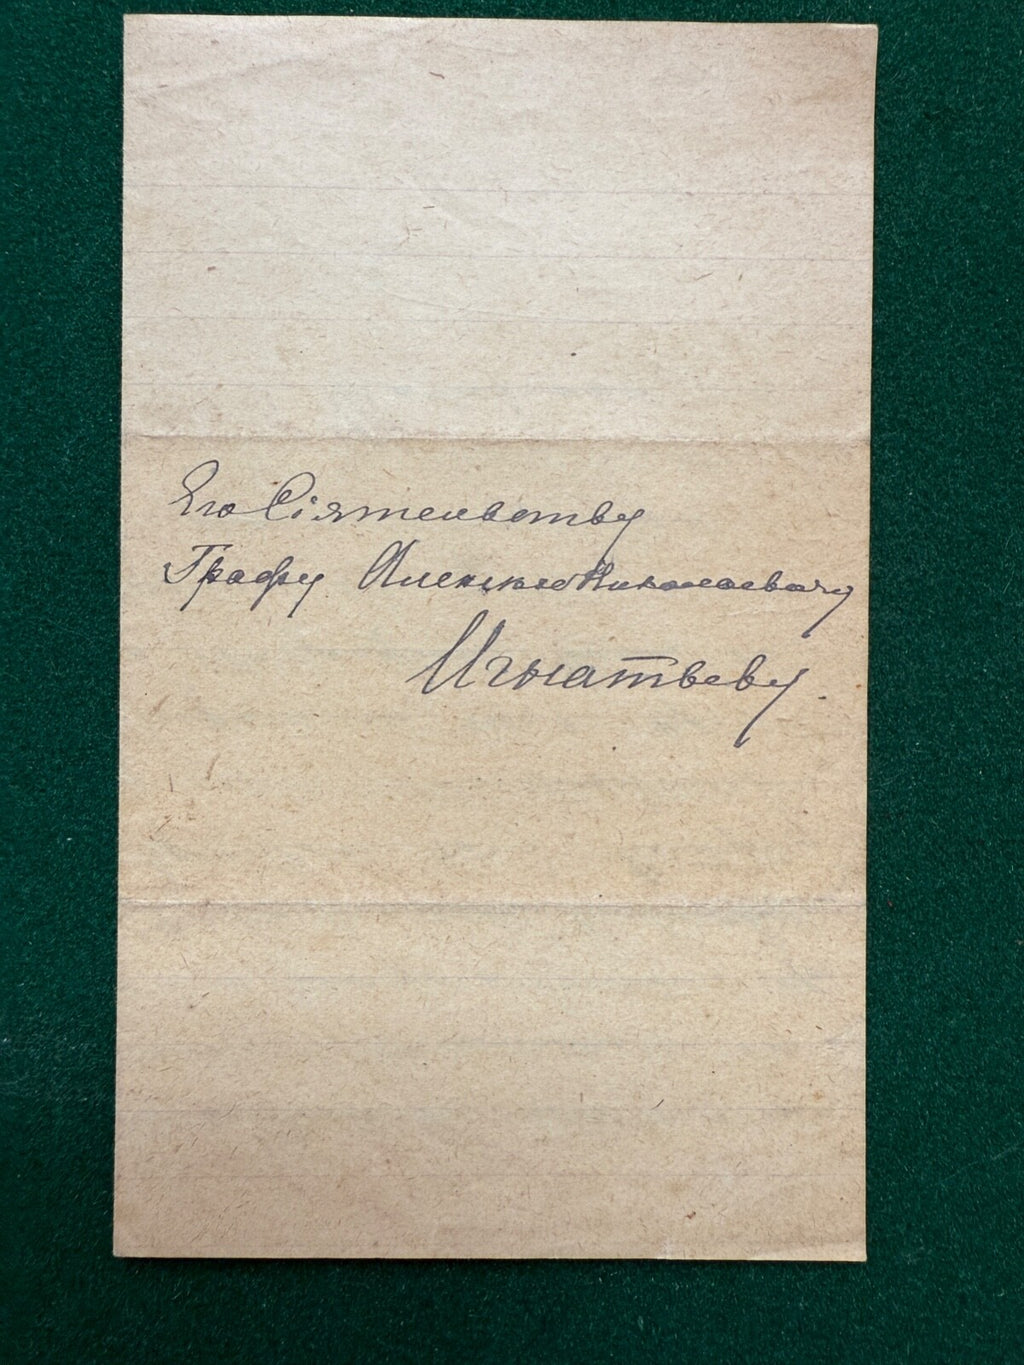 Его Сіятельству
Графу Алексѣю Николаевичу
Игнатьеву.